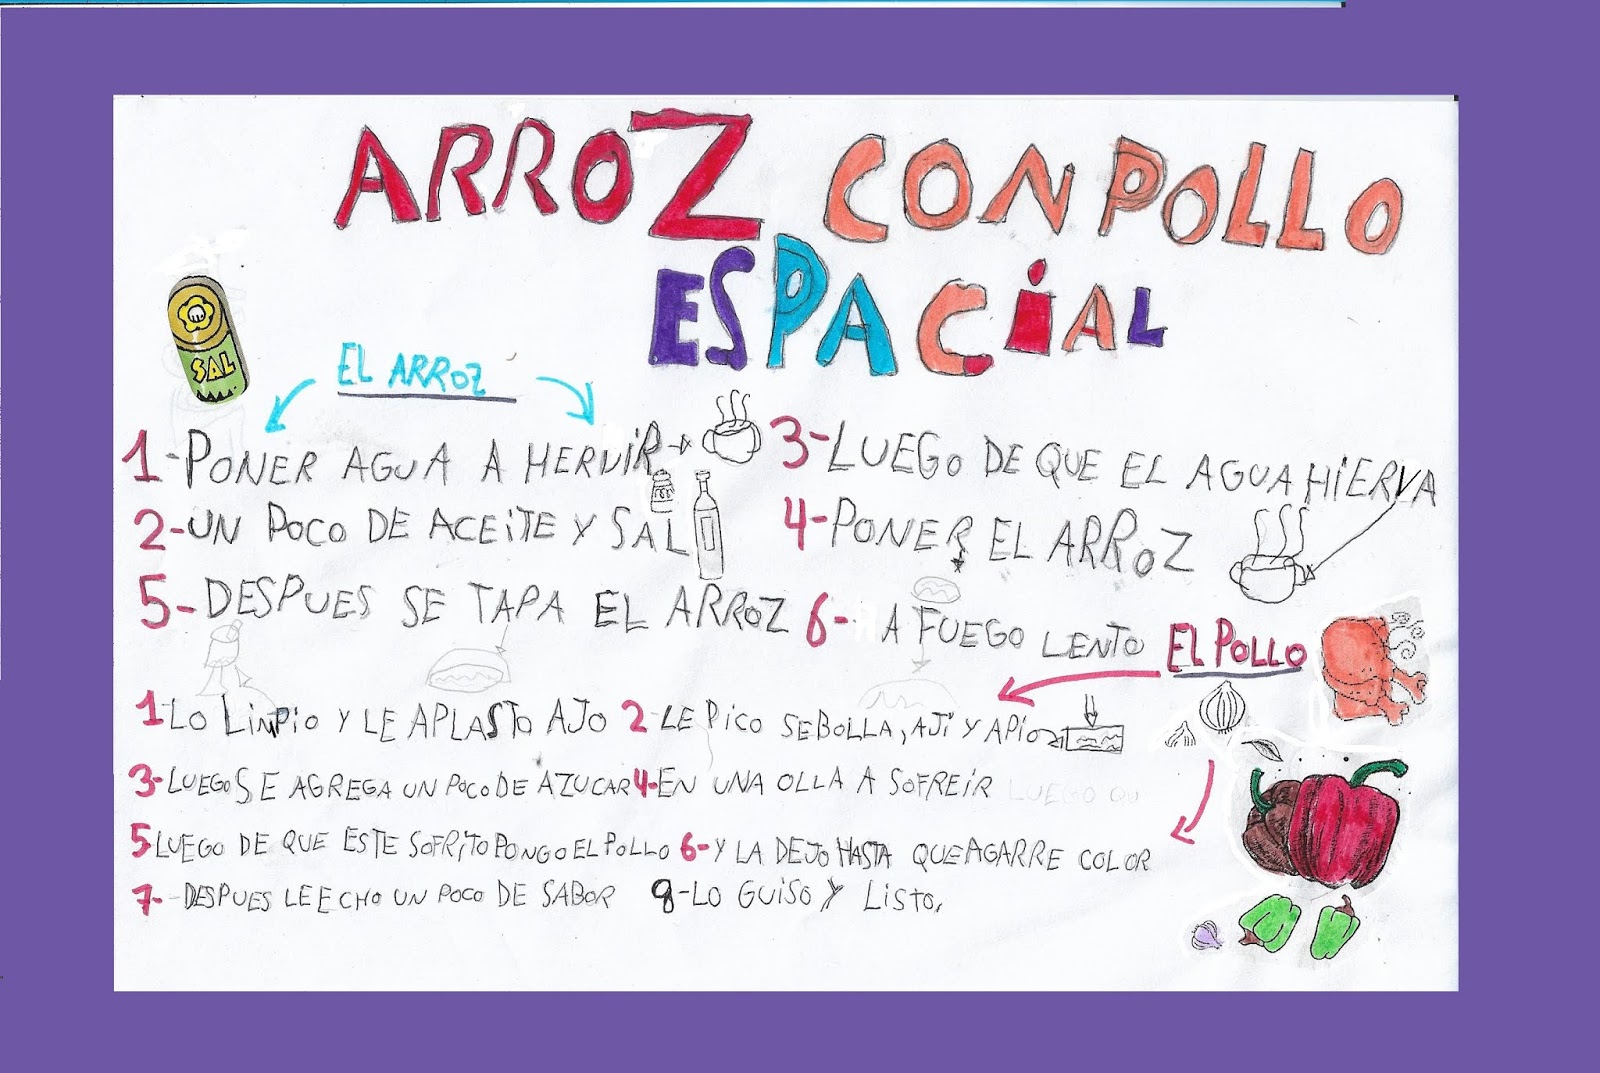 ARROZ CON POLLO
ESPACIAL
SAL
EL ARROZ
1-PONER AGUA A HERVIR
2-UN POCO DE ACEITE Y SAL
3-LUEGO DE QUE EL AGUA HIERVA
4-PONER EL ARROZ
5-DESPUES SE TAPA EL ARROZ 6- A FUEGO LENTO
EL POLLO
1-LO LINPIO Y LE APLASTO AJO 2-LE PICO SEBOLLA, AJÍ Y APIO
3-LUEGO SE AGREGA UN POCO DE AZUCAR 4-EN UNA OLLA A SOFREIR LUEGO QU
5 LUEGO DE QUE ESTE SOFRITO PONGO EL POLLO 6-Y LA DEJO HASTA QUE AGARRE COLOR
7-DESPUES LE ECHO UN POCO DE SABOR 8-LO GUISO Y LISTO,